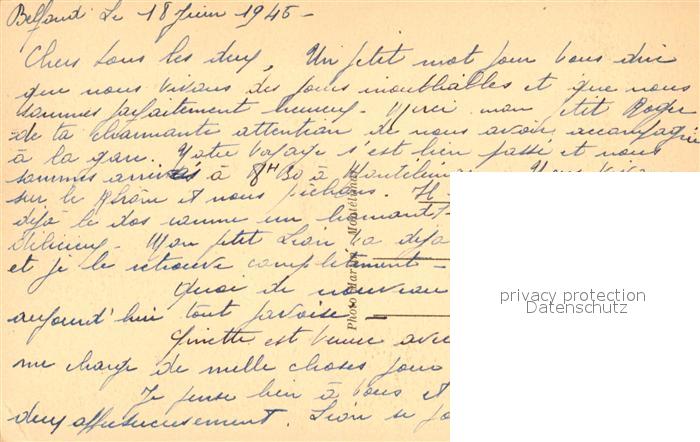 Belfond Le 18 Juin 1945 -
Chers tous les deux, Un petit mot pour vous dire
que nous vivons des jours inoubliables et que nous
sommes parfaitement heureux - Merci mon petit Roger
de ta charmante attention de nous avoir accompagné
à la gare. Notre voyage s'est bien passé et nous
sommes arrivés à 8H30 à Montélimar. Nous
sur le Rhône et nous pêchons.
déjà le dos comme un homard
délicieux - Mon petit Lion déjà
et je le retrouve complètement -
Quoi de nouveau
aujourd'hui tout pavoisé
Ginette est venue avec
me charge de mille choses pour
Je pense bien à vous et
deux affectueusement. Lion se
Photo Martin - Montélimar
privacy protection
Datenschutz